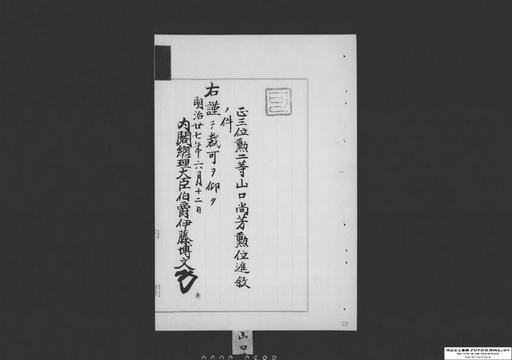 正三位勲二等山口尚芳勲位進叙
ノ件
右謹ニ裁可ヲ仰ク
明治廿七年六月十二日
内閣総理大臣伯爵伊藤博文
山口